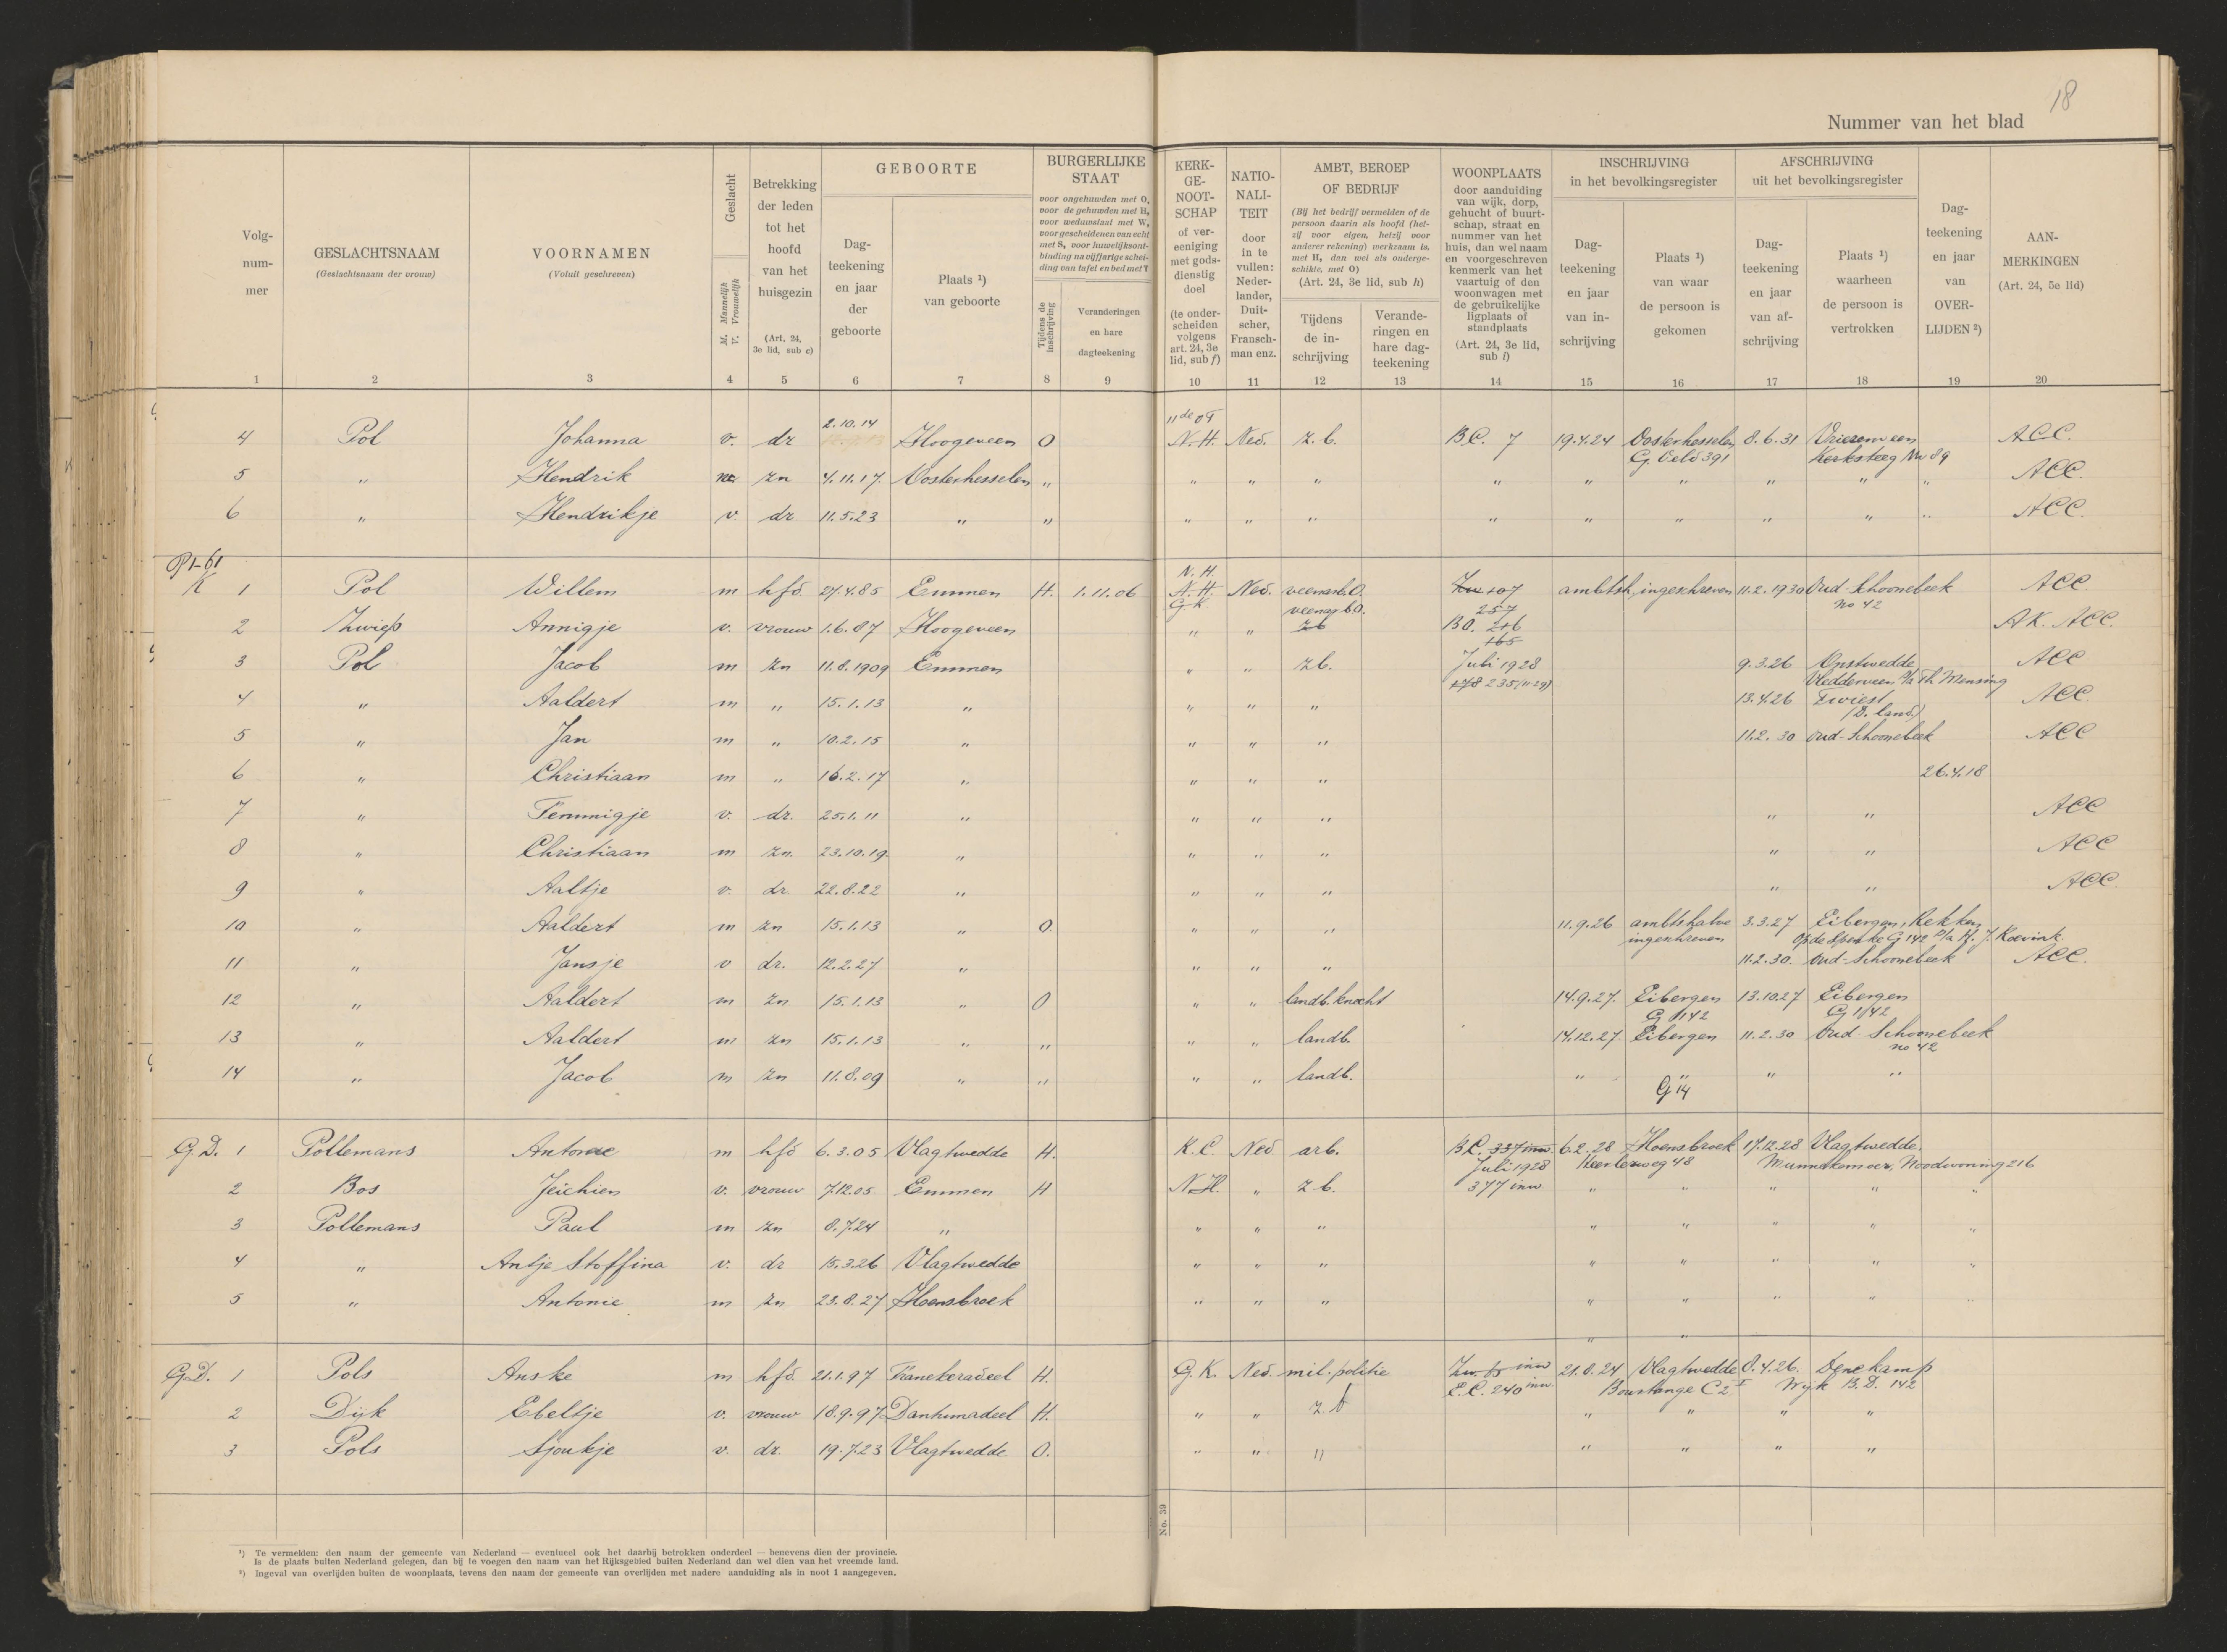 18
Nummer van het blad
Volg-
num-
mer
1
GESLACHTSNAAM
(Geslachtsnaam der vrouw)
2
VOORNAMEN
(Voluit geschreven)
3
Geslacht
M. Mannelijk
V. Vrouwelijk
4
Betrekking
der leden
tot het
hoofd
van het
huisgezin
(Art. 24,
3e lid, sub c)
5
GEBOORTE
Dag-
teekening
en jaar
der
geboorte
6
Plaats ¹)
van geboorte
7
BURGERLIJKE
STAAT
voor ongehuwden met O,
voor de gehuwden met H,
voor weduwstaat met W,
voor gescheidenen van echt
met S, voor huwelijksont-
binding na vijfjarige schei-
ding van tafel en bed met T
Tijdens de
inschrijving
8
Veranderingen
en hare
dagteekening
9
KERK-
GE-
NOOT-
SCHAP
of ver-
eeniging
met gods-
dienstig
doel
(te onder-
scheiden
volgens
art. 24, 3e
lid, sub f)
10
NATIO-
NALI-
TEIT
door
in te
vullen:
Neder-
lander,
Duit-
scher,
Fransch-
man enz.
11
AMBT, BEROEP
OF BEDRIJF
(Bij het bedrijf vermelden of de
persoon daarin als hoofd (het-
zij voor eigen, hetzij voor
anderer rekening) werkzaam is,
met H, dan wel als onderge-
schikte, met O)
(Art. 24, 3e lid, sub h)
Tijdens
de in-
schrijving
12
Verande-
ringen en
hare dag-
teekening
13
WOONPLAATS
door aanduiding
van wijk, dorp,
gehucht of buurt-
schap, straat en
nummer van het
huis, dan wel naam
en voorgeschreven
kenmerk van het
vaartuig of den
woonwagen met
de gebruikelijke
ligplaats of
standplaats
(Art. 24, 3e lid,
sub i)
14
INSCHRIJVING
in het bevolkingsregister
Dag-
teekening
en jaar
van in-
schrijving
15
Plaats ¹)
van waar
de persoon is
gekomen
16
AFSCHRIJVING
uit het bevolkingsregister
Dag-
teekening
en jaar
van af-
schrijving
17
Plaats ¹)
waarheen
de persoon is
vertrokken
18
Dag-
teekening
en jaar
van
OVER-
LIJDEN ²)
19
AAN-
MERKINGEN
(Art. 24, 5e lid)
20
4 Pol Johanna v. dr 2.10.14 Hoogeveen O N.H. Ned. z.b. BC. 7 19.4.24 Oosterhesselen 8.6.31 Vriezenveen ACC.
G. Veld 391 Kerksteeg Nw 89
5 " Hendrik m zn 4.11.17. Oosterhesselen " " " " " " " " " " ACC.
6 " Hendrikje v. dr 11.5.23 " " " " " " " " " " " ACC.
K 1 Pol Willem m hfd 27.4.85 Emmen H. 1.11.06 N.H. Ned. veenarb.O. 107 ambtsh. ingeschreven 11.2.1930 Oud-Schoonebeek ACC
G.K 257 no 42
2 Zwiep Annigje v. vrouw 1.6.87 Hoogeveen " " zb BO. 216 AK. ACC.
165
3 Pol Jacob m zn 11.8.1909 Emmen " " zb. Juli 1928 9.3.26 Onstwedde ACC
178 235 (11-29) Vledderveen p/a Th Mensing
4 " Aaldert m " 15.1.13 " " " " 13.4.26 Twiest ACC.
(D. land.)
5 " Jan m " 10.2.15 " " " " 11.2.30 Oud-Schoonebeek ACC
6 " Christiaan m " 16.2.17 " " " " 26.4.18
7 " Femmigje v. dr. 25.1.11 " " " " " " ACC
8 " Christiaan m zn. 23.10.19 " " " " " " ACC
9 " Aaltje v. dr. 22.8.22 " " " " " " ACC.
10 " Aaldert m zn 15.1.13 " O " " " 11.9.26 ambtshalve 3.3.27 Eibergen, Rekken
ingeschreven G 142 p/a H. J. Koevink
11 " Jansje v dr. 12.2.27 " " " " 11.2.30. Oud-Schoonebeek ACC.
12 " Aaldert m zn 15.1.13 " O " " landb. knecht 14.9.27. Eibergen 13.10.27 Eibergen
G 142 G 142
13 " Aaldert m zn 15.1.13 " " " " landb. 14.12.27. Eibergen 11.2.30 Oud-Schoonebeek
no 42
14 " Jacob m zn 11.8.09 " " " " landb. " " " "
G 14
G.D. 1 Pottemans Antonie m hfd 6.3.05 Vlagtwedde H. R.C. Ned arb. BC. 337 inw 6.2.28 Hoensbroek 17.12.28 Vlagtwedde.
Juli 1928 Heerlerweg 48 Munnekemoer, Noodwoning 216
2 Bos Jeichien v. vrouw 7.12.05 Emmen H N.H. " z.b. 377 inw " " " " "
3 Pottemans Paul m zn 8.7.24 " " " " " " " " "
4 " Antje Stoffina v. dr 15.3.26 Vlagtwedde " " " " " " " "
5 " Antonie m zn 23.8.27 Hoensbroek " " " " " " " "
" "
G.D. 1 Pols Anske m hfd. 21.1.97 Franekeradeel H. G.K. Ned. mil. politie inw 21.8.24 Vlagtwedde 8.4.26. Denekamp
E.C. 240 inw. Bourtange C 2 I Wijk B.D. 142
2 Dijk Ebeltje v. vrouw 18.9.97 Dantumadeel H. " " z.b " " " "
3 Pols Sjoukje v. dr. 19.7.23 Vlagtwedde O. " " " " " " "
No. 39
¹) Te vermelden: den naam der gemeente van Nederland — eventueel ook het daarbij betrokken onderdeel — benevens dien der provincie.
Is de plaats buiten Nederland gelegen, dan bij te voegen den naam van het Rijksgebied buiten Nederland dan wel dien van het vreemde land.
²) Ingeval van overlijden buiten de woonplaats, tevens den naam der gemeente van overlijden met nadere aanduiding als in noot 1 aangegeven.